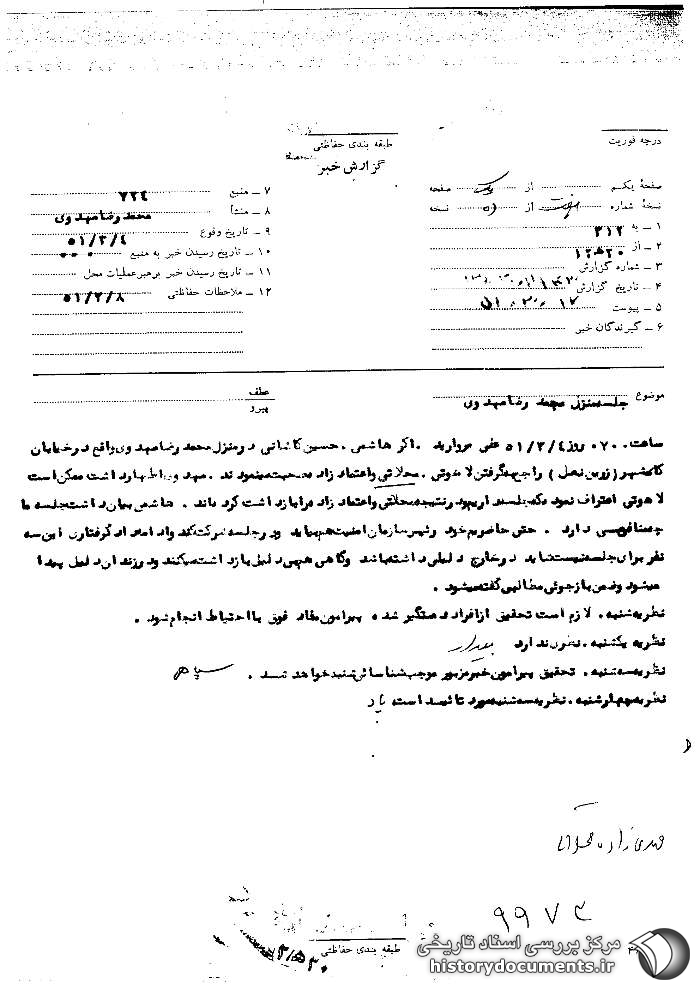 درجه فوریت
طبقه بندی حفاظتی
گزارش خبر
صفحهٔ یکم از یک صفحه
نسخهٔ شماره از نسخه
۱ ـ به ۳۱۲
۲ ـ از ۱۲ ه‍ ۲۰
۳ ـ شماره گزارش
۴ ـ تاریخ گزارش
۵ ـ پیوست
۶ ـ گیرندگان خبر
۷ ـ منبع ۷۲۴
۸ ـ منشأ محمد رضا مهدوی
۹ ـ تاریخ وقوع ۵۱/۳/۴
۱۰ ـ تاریخ رسیدن خبر به منبع
۱۱ ـ تاریخ رسیدن خبر برهبر عملیات محل
۱۲ ـ ملاحظات حفاظتی ۵۱/۳/۸
موضوع جلسه منزل محمد رضا مهدوی
عطف
پیرو
ساعت ۰۷۰ روز ۵۱/۳/۴ علی مروارید . اکبر هاشمی . حسین کاشانی در منزل محمد رضا مهدوی واقع در خیابان
راجع بگرفتن لاهوتی . محلاتی و اعتمادزاده صحبت مینمودند . مهدوی اظهار داشت ممکن است
لاهوتی اعتراف نموده که جلسه دارند در نتیجه محلاتی و اعتمادزاده را بازداشت کرده‌اند . هاشمی بیان داشت جلسه ما
چه دارد . حتی حاضریم خود رئیس سازمان امنیت هم بیاید و در جلسه شرکت کند و ادامه داد گرفتاری این سه
نفر برای جلسه نیست شاید در خارج دلیلی داشته باشد و گاهی هم بی دلیل بازداشت میکنند و در زندان دلیل پیدا
میشود و ضمن بازجوئی مطالبی گفته میشود .
نظریه شنبه . لازم است تحقیق از افراد دستگیر شده پیرامون مفاد فوق با احتیاط انجام شود .
نظریه یکشنبه . نظری ندارد
نظریه سه شنبه . تحقیق پیرامون خبر مزبور موجب شناسائی شنبه خواهد شد .
نظریه چهارشنبه . نظریه سه شنبه مورد تائید است
۹۹۷۳
طبقه بندی حفاظتی
مرکز بررسی اسناد تاریخی
historydocuments.ir